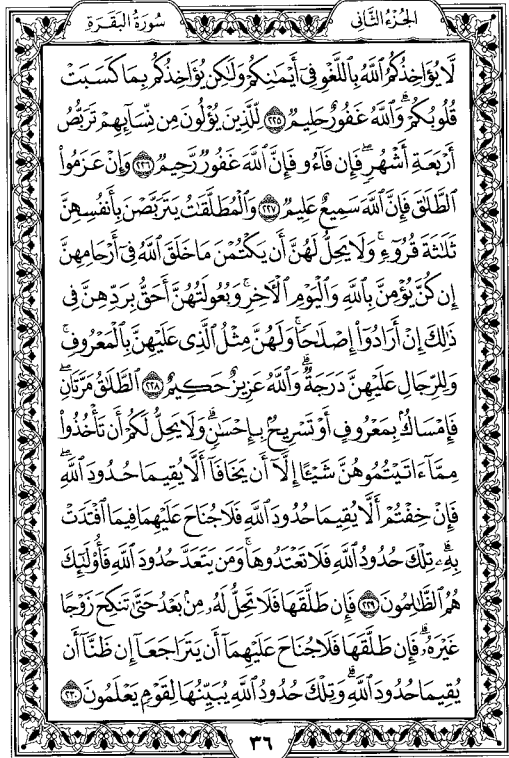 الجُزءُ الثَّانِي سُورَةُ البَقَرَةِ
لَّا يُؤَاخِذُكُمُ اللَّهُ بِاللَّغْوِ فِي أَيْمَانِكُمْ وَلَٰكِن يُؤَاخِذُكُم بِمَا كَسَبَتْ
قُلُوبُكُمْ ۗ وَاللَّهُ غَفُورٌ حَلِيمٌ ٢٢٥ لِّلَّذِينَ يُؤْلُونَ مِن نِّسَآئِهِمْ تَرَبُّصُ
أَرْبَعَةِ أَشْهُرٍ ۖ فَإِن فَآءُو فَإِنَّ اللَّهَ غَفُورٌ رَّحِيمٌ ٢٢٦ وَإِنْ عَزَمُوا۟
الطَّلَٰقَ فَإِنَّ اللَّهَ سَمِيعٌ عَلِيمٌ ٢٢٧ وَالْمُطَلَّقَٰتُ يَتَرَبَّصْنَ بِأَنفُسِهِنَّ
ثَلَٰثَةَ قُرُوٓءٍ ۚ وَلَا يَحِلُّ لَهُنَّ أَن يَكْتُمْنَ مَا خَلَقَ اللَّهُ فِيٓ أَرْحَامِهِنَّ
إِن كُنَّ يُؤْمِنَّ بِاللَّهِ وَالْيَوْمِ الْأَخِرِ ۚ وَبُعُولَتُهُنَّ أَحَقُّ بِرَدِّهِنَّ فِي
ذَٰلِكَ إِنْ أَرَادُوٓا۟ إِصْلَٰحًا ۚ وَلَهُنَّ مِثْلُ الَّذِي عَلَيْهِنَّ بِالْمَعْرُوفِ ۚ
وَلِلرِّجَالِ عَلَيْهِنَّ دَرَجَةٌ ۗ وَاللَّهُ عَزِيزٌ حَكِيمٌ ٢٢٨ الطَّلَٰقُ مَرَّتَانِ ۖ
فَإِمْسَاكٌۢ بِمَعْرُوفٍ أَوْ تَسْرِيحٌۢ بِإِحْسَٰنٍ ۗ وَلَا يَحِلُّ لَكُمْ أَن تَأْخُذُوا۟
مِمَّآ ءَاتَيْتُمُوهُنَّ شَيْـًٔا إِلَّآ أَن يَخَافَآ أَلَّا يُقِيمَا حُدُودَ اللَّهِ ۖ
فَإِنْ خِفْتُمْ أَلَّا يُقِيمَا حُدُودَ اللَّهِ فَلَا جُنَاحَ عَلَيْهِمَا فِيمَا افْتَدَتْ
بِهِۦ ۗ تِلْكَ حُدُودُ اللَّهِ فَلَا تَعْتَدُوهَا ۚ وَمَن يَتَعَدَّ حُدُودَ اللَّهِ فَأُو۟لَٰٓئِكَ
هُمُ الظَّٰلِمُونَ ٢٢٩ فَإِن طَلَّقَهَا فَلَا تَحِلُّ لَهُۥ مِنۢ بَعْدُ حَتَّىٰ تَنكِحَ زَوْجًا
غَيْرَهُۥ ۗ فَإِن طَلَّقَهَا فَلَا جُنَاحَ عَلَيْهِمَآ أَن يَتَرَاجَعَآ إِن ظَنَّآ أَن
يُقِيمَا حُدُودَ اللَّهِ ۗ وَتِلْكَ حُدُودُ اللَّهِ يُبَيِّنُهَا لِقَوْمٍ يَعْلَمُونَ ٢٣٠
٣٦